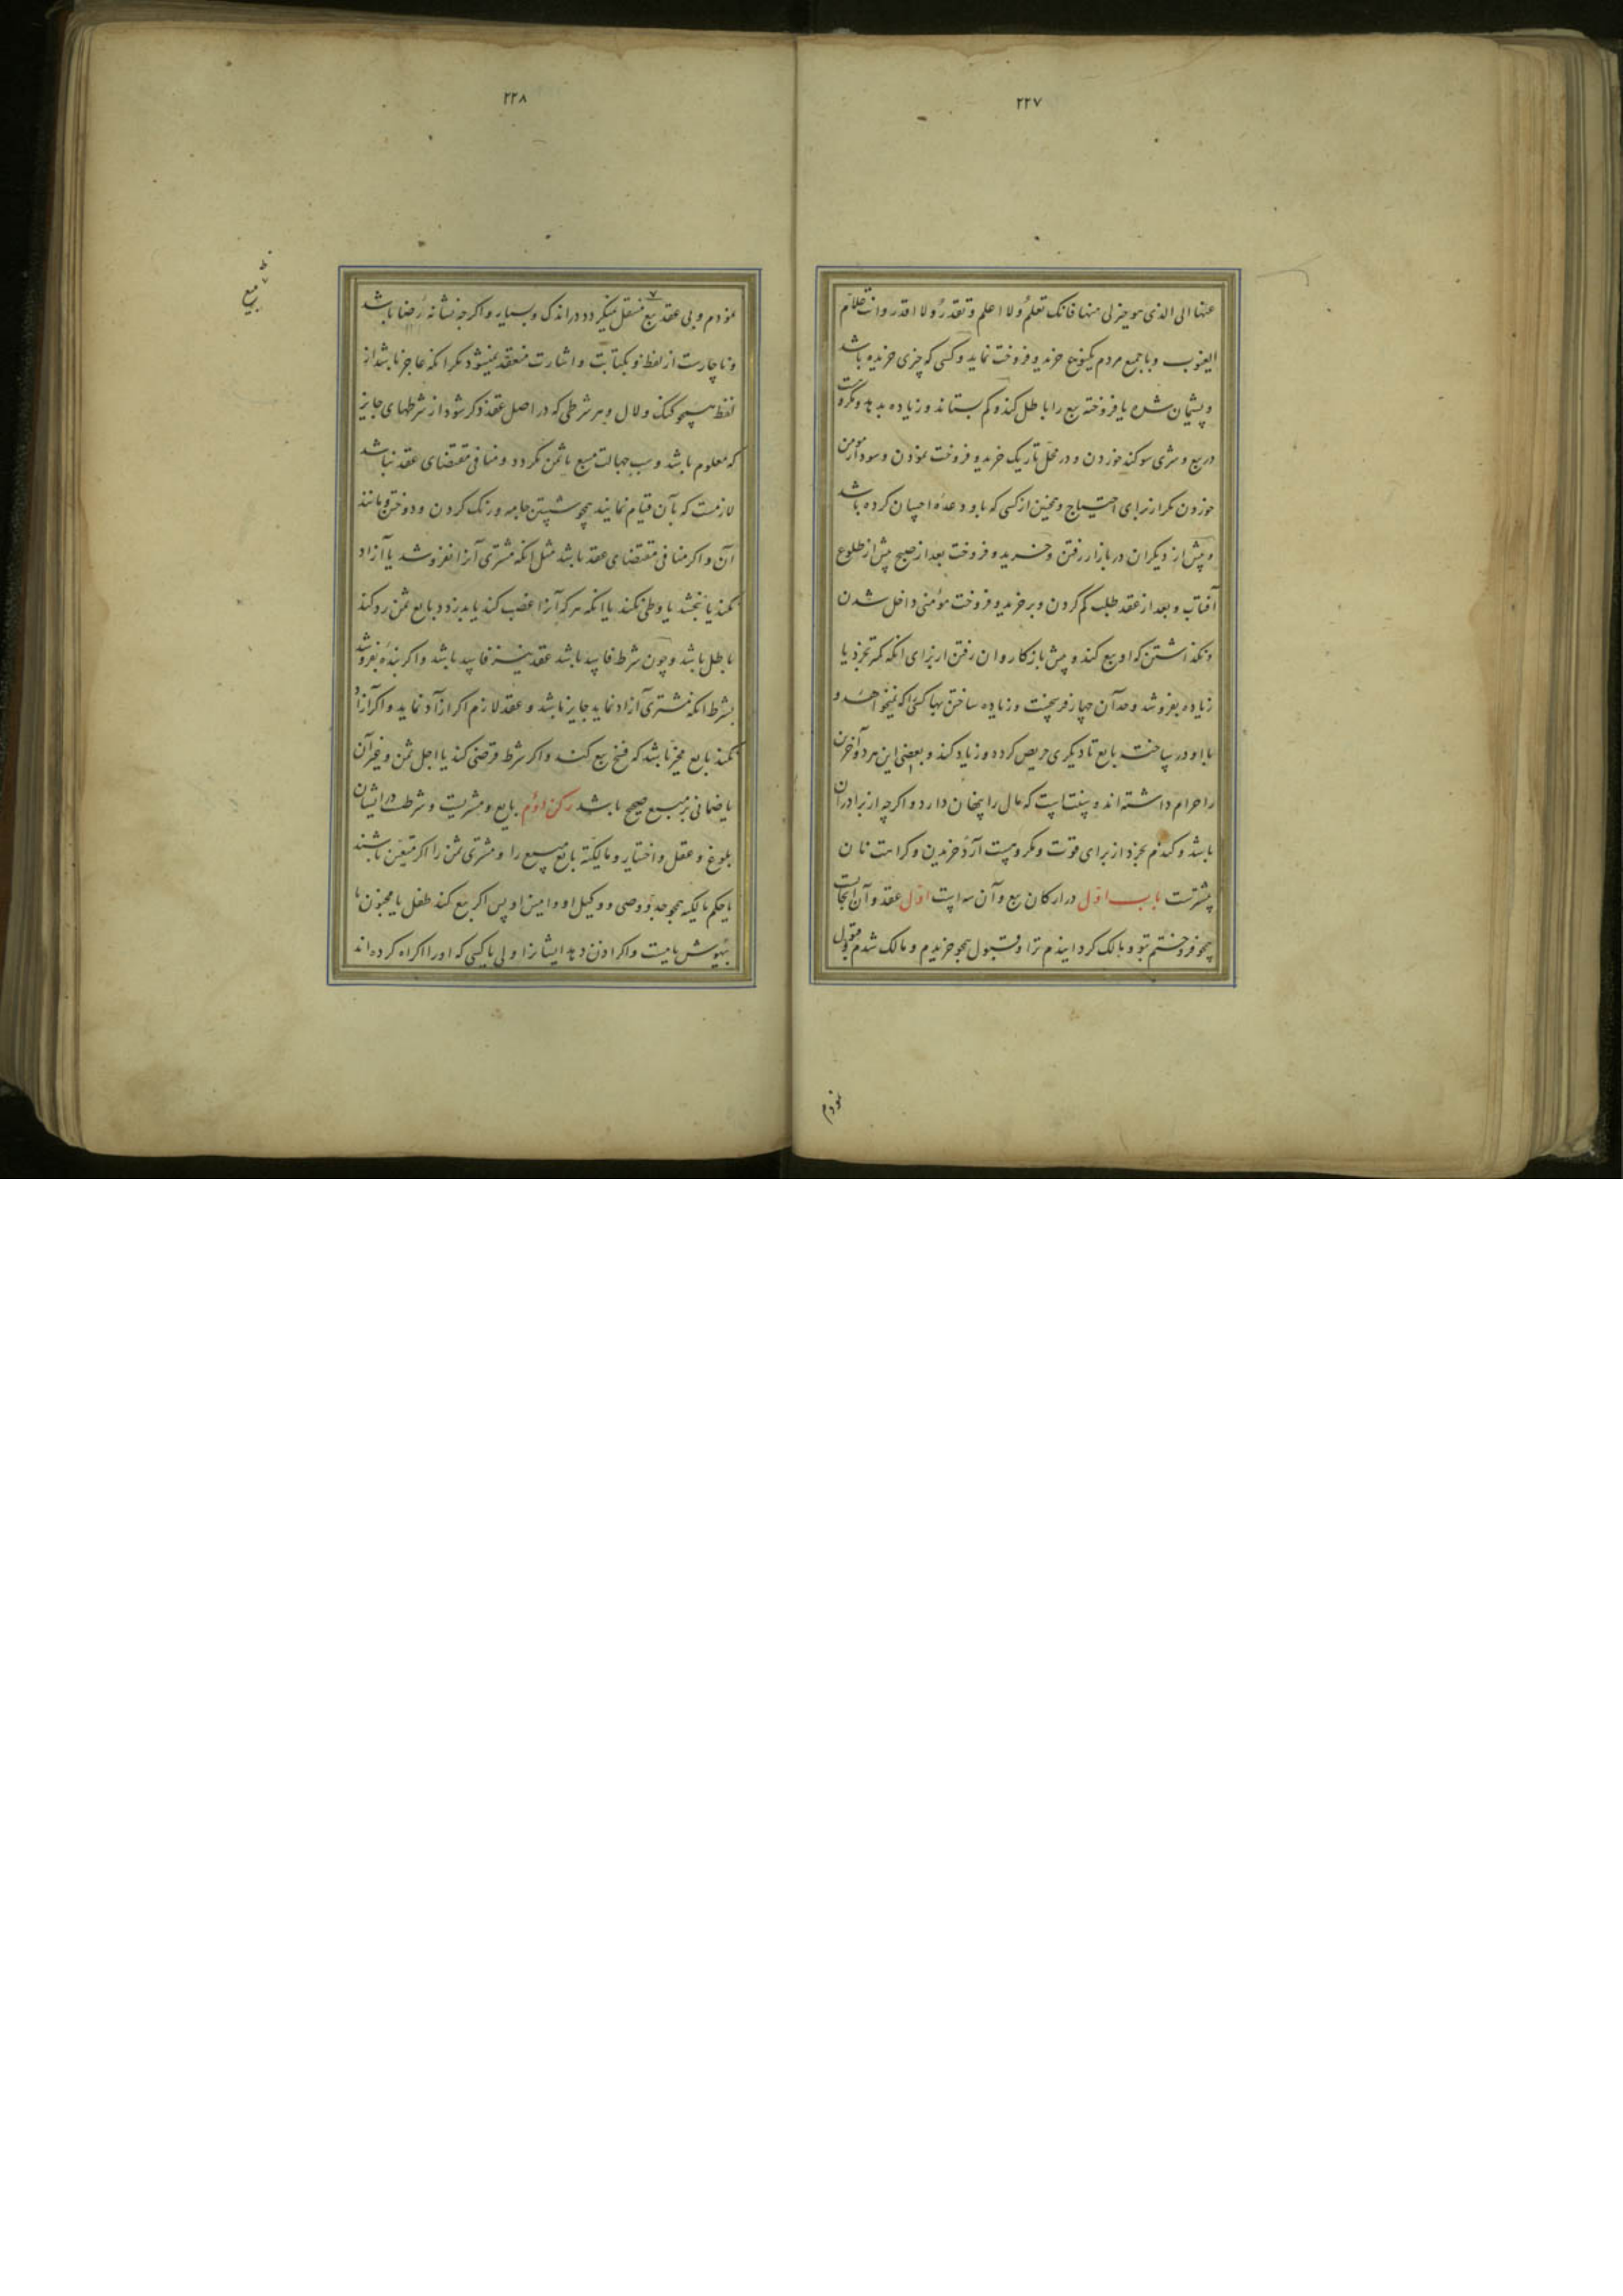 ۲۲۷
عنها الی الذی هو خیر لی منها فانک تعلم ولا اعلم وتقدر ولا اقدر وانت علام
الغیوب و با جمیع مردم یکنوع خرید و فروخت نماید و کسی که چیزی خریده باشد
و پشیمان شده یا فروخته بیع را باطل کند و کم بستاند و زیاده بدهد و مکروهست
در بیع و شری سوکند خوردن و در محل تاریک خرید و فروخت نمودن و سود از مومن
خوردن مکر از برای احتیاج و همچنین از کسی که با و وعده احسان کرده باشد
و پیش از دیکران در بازار رفتن و خرید و فروخت بعد از صبح پیش از طلوع
آفتاب و بعد از عقد طلب کم کردن و بر خرید و فروخت مؤمنی داخل شدن
و نکذاشتن که او بیع کند و پیش باز کاروان رفتن از برای انکه کمتر بخرد یا
زیاده بفروشد و حد آن چهار فرسخست و زیاده ساختن بها کسی را که نمیخواهد و
با او در ساخت بایع تا دیکری حریص کرده و زیاد کند و بعضی این هر دو آخرین
را حرام داشته اند و سنتست که مال را پنهان دارد و اکرچه از برادران
باشد و کندم بخرد از برای قوت و مکروهست آرد خریدن و کراهت نان
بیشترست باب اول در ارکان بیع و آن سه است اول عقد و آن ایجابست
همچو فروختم بتو و مالک کردانیدم ترا و قبول همچو خریدم و مالک شدم و قبول
نمودم
۲۲۸
نمودم و بی عقد بیع منتقل نمیکردد در اندک و بسیار و اکرچه نشانه رضا باشد
و ناچارست از لفظ و بکتابت و اشارت منعقد نمیشود مکر انکه عاجز باشد از
لفظ همچو کنک و لال و هر شرطی که در اصل عقد ذکر شود از شرطهای جایز
که معلوم باشد و سبب جهالت مبیع یا ثمن نکردد و منافی مقتضای عقد نباشد
لازمست که بآن قیام نمایند همچو شستن جامه و رنک کردن و دوختن و مانند
آن و اکر منافی مقتضای عقد باشد مثل انکه مشتری آنرا نفروشد یا آزاد
نکند یا نبخشد یا وطی نکند یا انکه هر که آنرا غصب کند یا بدزدد بایع ثمن رد کند
باطل باشد و چون شرط فاسد باشد عقد نیز فاسد باشد و اکر بنده بفروشد
بشرط انکه مشتری آزاد نماید جایز باشد و عقد لازم اکر آزاد نماید و اکر آزاد
نکند بایع مخیر باشد که فسخ بیع کند و اکر شرط قرضی کند یا اجل ثمن و غیر آن
یا ضمانی بر مبیع صحیح باشد رکن دوم بایع و مشتریست و شرطست در ایشان
بلوغ و عقل و اختیار و مالکیت بایع مبیع را و مشتری ثمن را اکر متعین باشند
یا حکم مالکیت همچو جد و وصی و وکیل او و امین او پس اکر بیع کند طفل یا مجنون یا
بیهوش یا مست و اکر اذن دهد ایشانرا ولی یا کسی که او را اکراه کرده اند